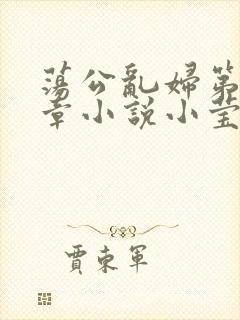 蕩公亂婦第
章小説小瑩
賈東軍